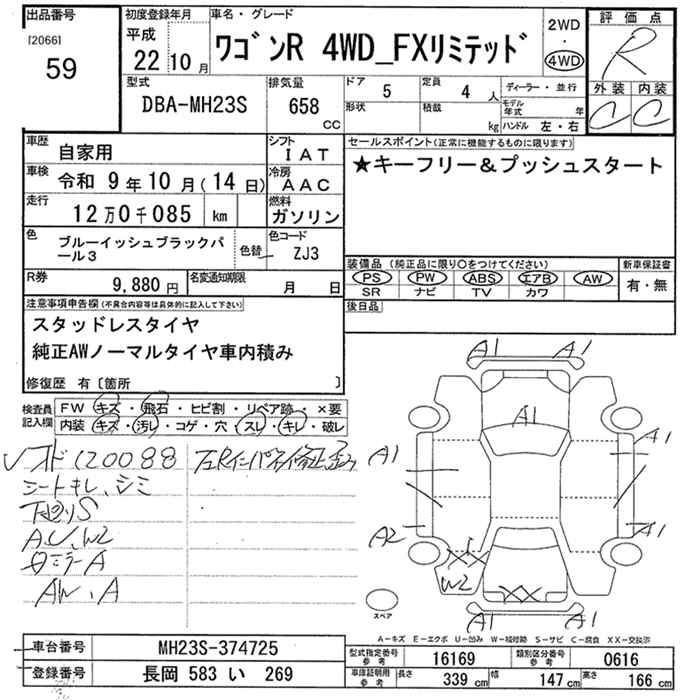 出品番号
[2066]
59
初度登録年月
平成
22 10 月
車名・グレード
ワゴンR 4WD_FXリミテッド
2WD
・
4WD
評価点
R
外装 内装
C C
型式
DBA-MH23S
排気量
658
CC
ドア
5
定員
4 人
形状
積載
kg
ディーラー・並行
モデル年式 年
ハンドル 左・右
車歴
自家用
シフト
IAT
車検
令和 9年10月(14日)
冷房
AAC
走行
12万0千085 km
燃料
ガソリン
色
ブルーイッシュブラックパ
ール3
色替
色コード
ZJ3
R券
9,880 円
名変通知期限
月 日
セールスポイント(正常に機能するものに限ります)
★キーフリー&プッシュスタート
装備品(純正品に限り○をつけてください)
PS PW ABS エアB AW
SR ナビ TV カワ
新車保証書
有・無
後日品
注意事項申告欄(不具合内容等は具体的に記入して下さい)
スタッドレスタイヤ
純正AWノーマルタイヤ車内積み
修復歴 有〔箇所 〕
検査員
記入欄
FW キズ・飛石・ヒビ割・リペア跡・×要
内装 キズ・汚レ・コゲ・穴・スレ・キレ・破レ
120088
シートキレ、シミ
下廻りS
A.U.W2
ロミラーA
AW、A
A1 A1
A1
A1 A1
A2 A1
W2
A1 A1
スペア
A－キズ E－エクボ U－凹み W－補修跡 S－サビ C－腐食 XX－交換済
車台番号
MH23S-374725
登録番号
長岡 583 い 269
型式指定番号
参考
16169
類別区分番号
参考
0616
車庫証明用
参考
長さ 339 cm
幅 147 cm
高さ 166 cm